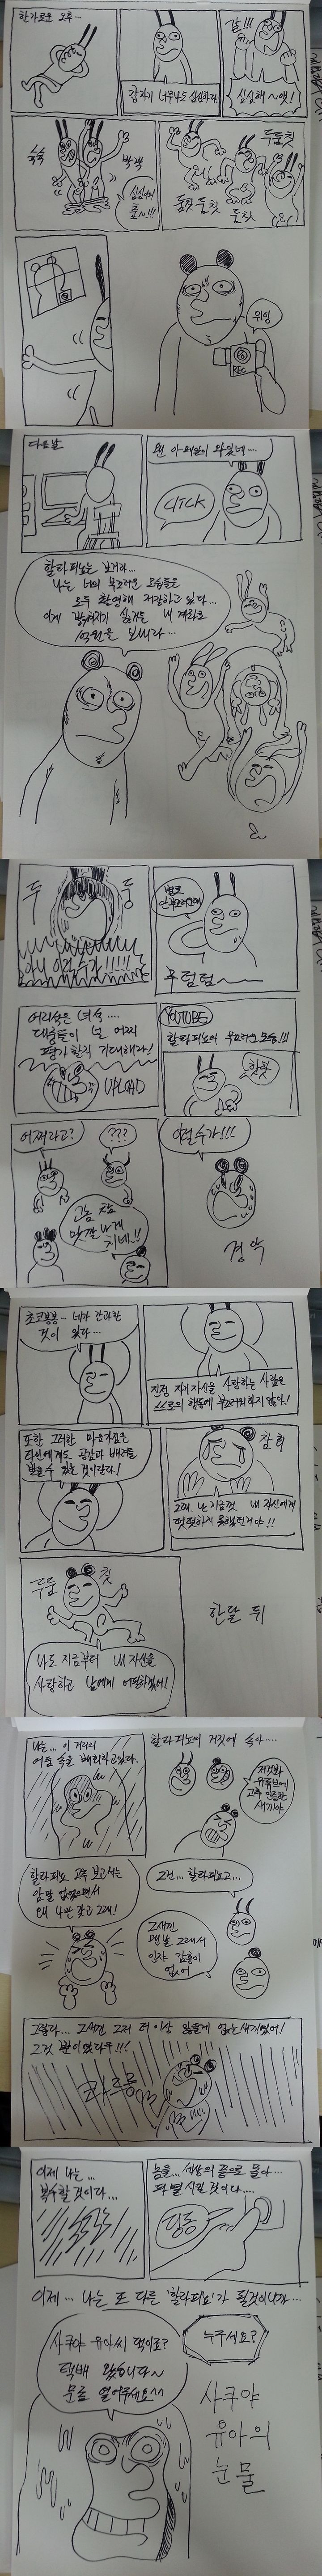 한가로운 오후...
갑자기 너무나도 심심하다.
심심해~앳!
쓱쓱
박박
심심해의
춤~!!!
두둠칫
둠칫둠칫
둠칫
위잉
REC
다음날
웬 이메일이 와있네....
CLICK
할라피뇨는 보거라...
나는 너의 부끄러운 모습들을
모두 촬영해 저장하고 있다...
이게 밝혀지기 싫거든 내 계좌로
1억원을 보내라...
두
둥
아니 이게 누구야!!!!!
별로
안 부끄러운데
무덤덤~
어리석은 녀석....
대중들이 널 어찌
평가할지 기대해라!
UPLOAD
YOUTUBE
할라피뇨의 부끄러운 모습!!!
핫핫
어쩌라고?
???
고놈 참
맛깔나게
치네!!
이럴수가!!!
경악
초코봉봉... 네가 간과한
것이 있다...
진정 자기자신을 사랑하는 사람은
스스로의 행동에 부끄러워하지 않아!
또한 그러한 마음가짐은
타인에게도 공감과 배려를
할 수 있는 것이란다!
참회
그래.. 난 지금껏 내 자신에게
떳떳하지 못했던거야!!
두둠
칫
나도 지금부터 내 자신을
사랑하고 남에게 떳떳하겠어!
한달 뒤
나는... 이 거리의
어둠 속을 배회하고있다.
할라피뇨의 거짓에 속아....
저것봐
유튜브에
고추 인증한
새끼야
할라피뇨 고추 보고서는
암말 없었으면서
왜 나만 갖고 그래!
그건... 할라피뇨고...
그새낀
맨날 그래서
인자 감흥이
없어
그렇다... 그새낀 그저 더 이상 잃을게 없는 새끼였어!
그것 뿐이었다구!!!
크흐릉
이제 나는...
복수할 것이다...
놈을... 세상의 끝으로 몰아...
파멸시킬 것이다....
딩동
이제... 나는 또 다른 '할라피뇨'가 될것이니까...
사쿠야 유아씨 댁이죠?
택배 왔습니다~
문 좀 열어주세요^^
누구세요?
사쿠야
유아의
눈물